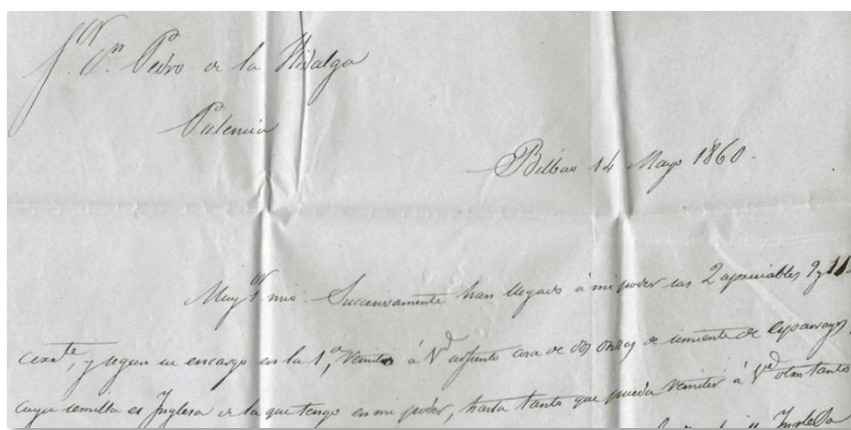 Sor Dn Pedro de la Hidalga
Palencia
Bilbao 14 Mayo 1860.
Muy Sor mio: Sucesivamente han llegado á mi poder sus 2 apreciables 9 y 11
corrte, y segun su encargo en la 1a, remito á Vd adjunto cosa de dos onzas de simiente de esparragos,
cuya semilla es Inglesa de la que tengo en mi poder, hasta tanto que pueda remitir á Vd otro tanto
Inglesa